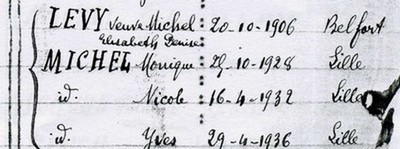 LEVY veuve Michel : 20-10-1906 Belfort
Elisabeth Denise
MICHEL Monique : 29-10-1928 Lille
id. Nicole : 16-4-1932 Lille
id. Yves : 29-4-1936 Lille